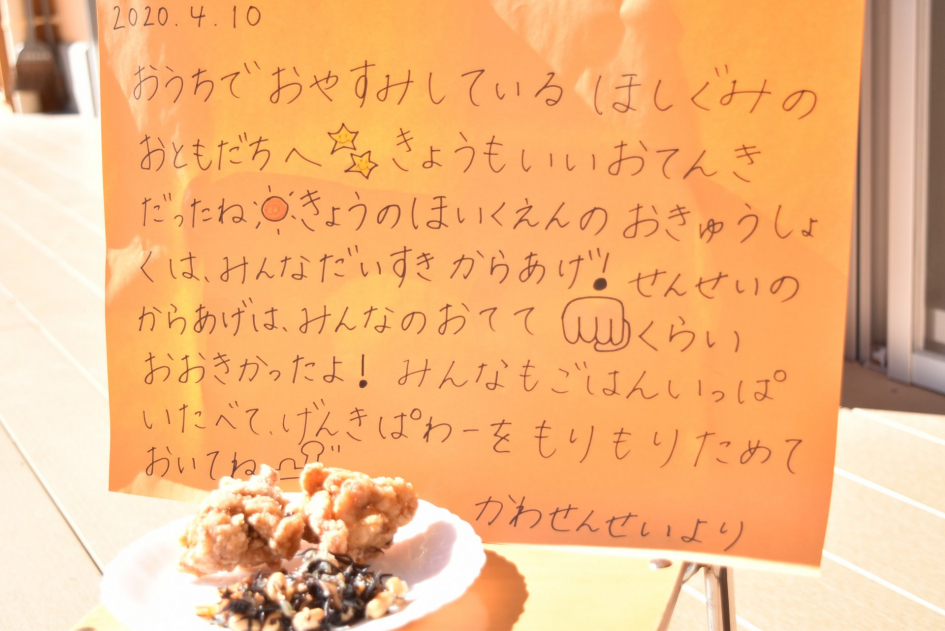 2020.4.10
おうちでおやすみしている ほしぐみの
おともだちへ きょうもいいおてんき
だったね きょうのほいくえんの おきゅうしょ
くは、みんなだいすき からあげ! せんせいの
からあげは、みんなのおてて くらい
おおきかったよ! みんなもごはんいっぱ
いたべて、げんきぱわーをもりもりためて
おいてね
かわせんせいより